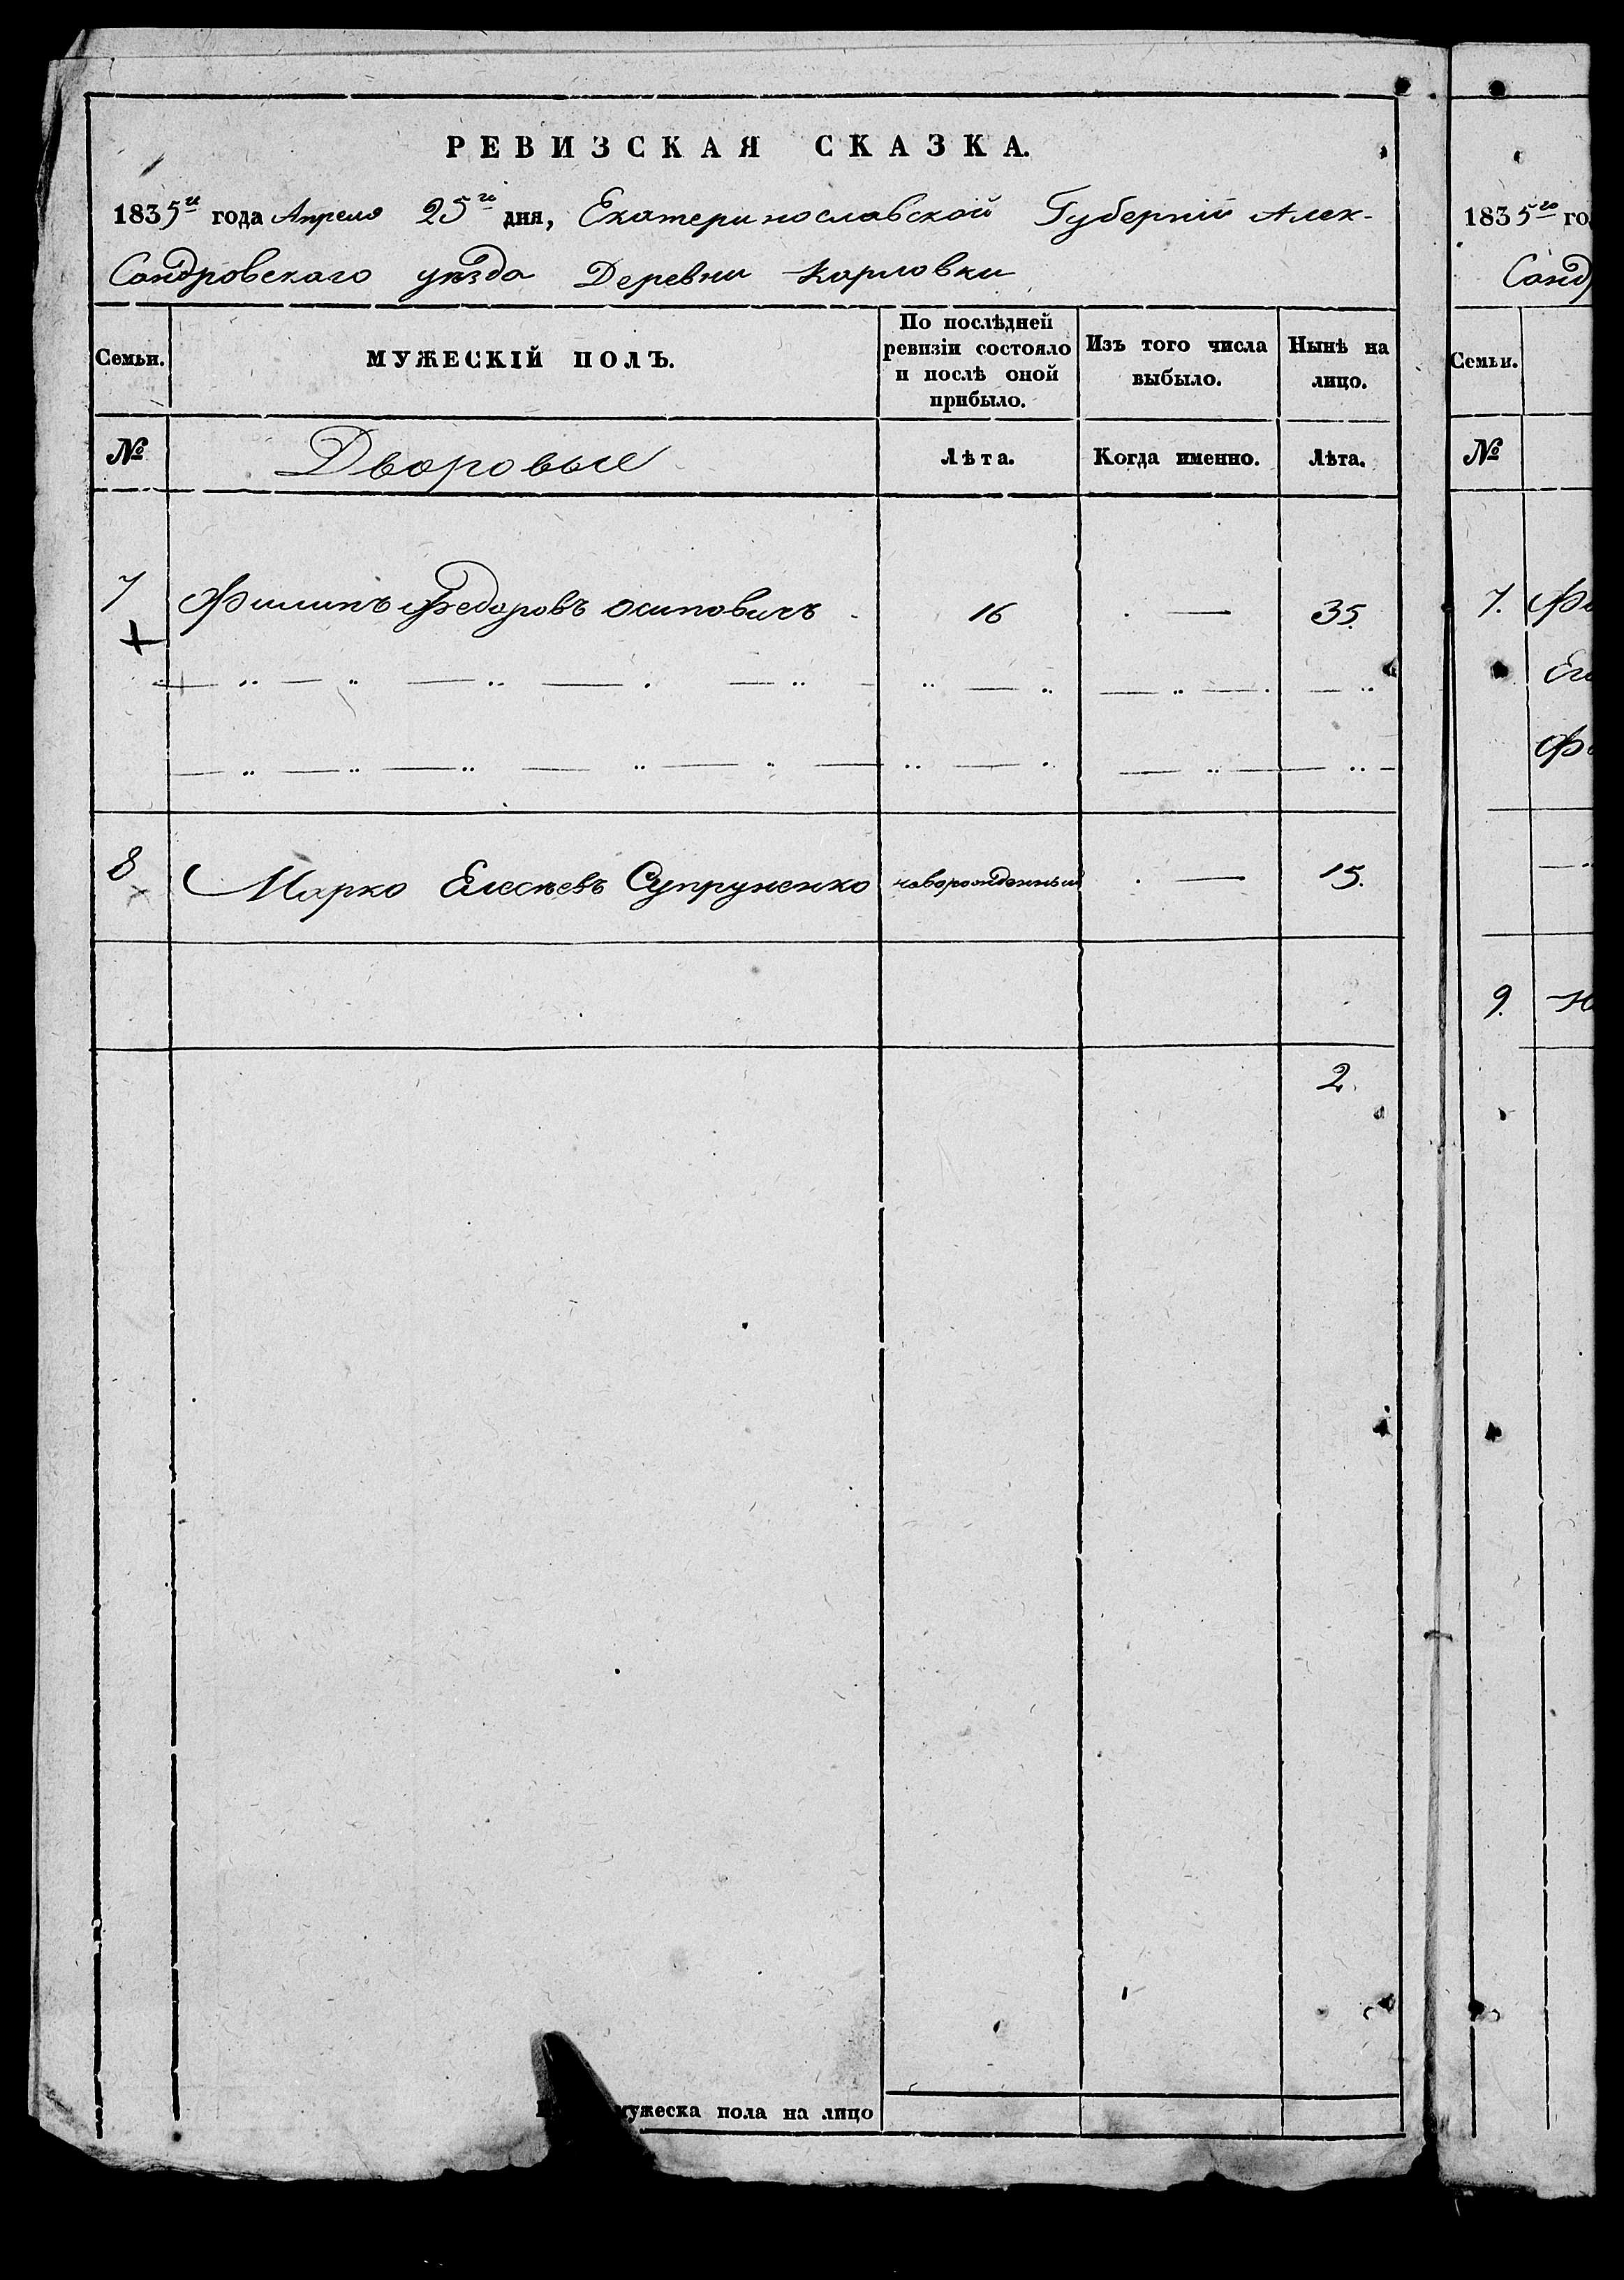 РЕВИЗСКАЯ СКАЗКА.
1835го года Апреля 25го дня, Екатеринославской Губерніи Алек-
Сандровскаго уѣзда Деревни Карловки
Семьи.
МУЖЕСКІЙ ПОЛЪ.
По послѣдней
ревизіи состояло
и послѣ оной
прибыло.
Изъ того числа
выбыло.
Нынѣ на
лицо.
№
Дворовые
Лѣта.
Когда именно.
Лѣта.
7 Филипъ Федоровъ Осиповичъ 16 — 35.
8 Марко Елесѣевъ Супруненко новорожденный — 15.
2.
мужеска пола на лицо
1835го го
Санд
Семьи.
№
7. Фи
Ег
Фе
9.